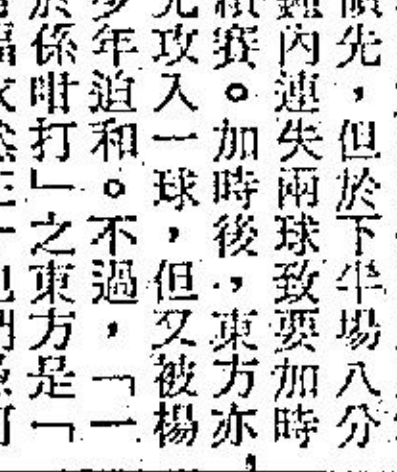 先，但於下半場八分
鐘內連失兩球致要加時
賽。加時後，東方亦，
先攻入一球，但又被楊
年迫和。不過，「一
於係咁打」之東方是「